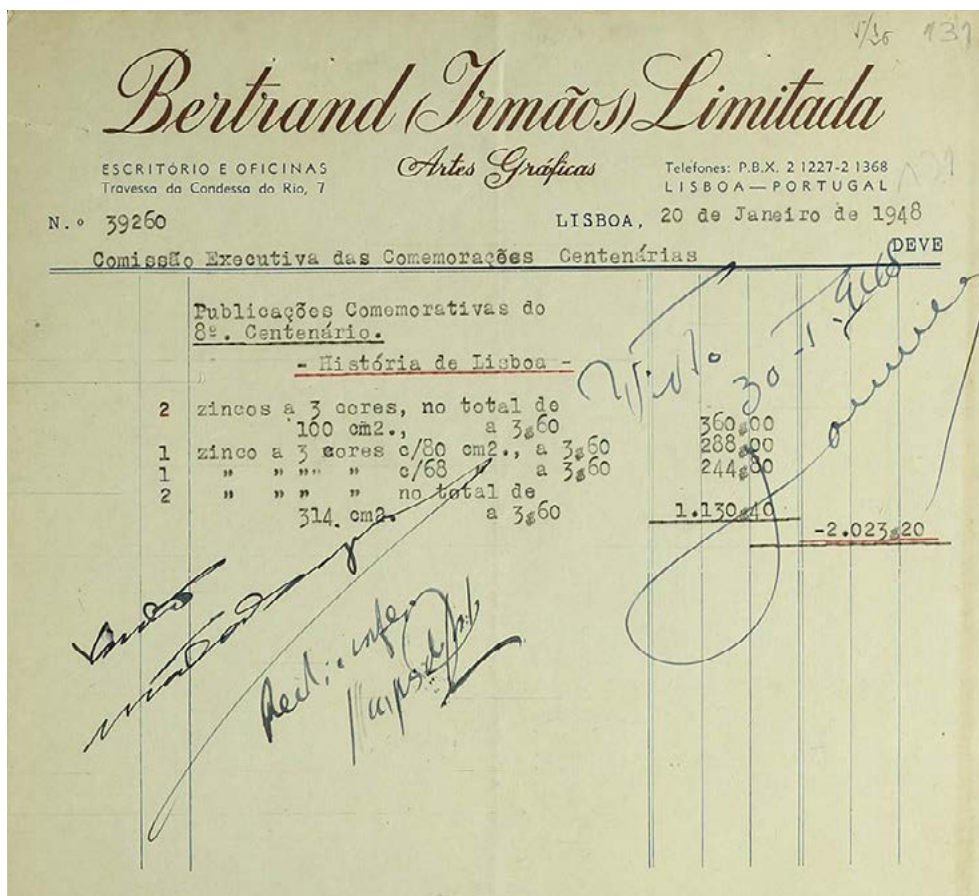 131
Bertrand (Irmãos) Limitada
Artes Gráficas
ESCRITÓRIO E OFICINAS
Travessa da Condessa do Rio, 7
Telefones: P.B.X. 2 1227-2 1368
LISBOA—PORTUGAL
N.º 39260
LISBOA, 20 de Janeiro de 1948
DEVE
Comissão Executiva das Comemorações Centenárias
Publicações Comemorativas do
8º. Centenário.
- História de Lisboa -
2 zincos a 3 cores, no total de
100 cm2., a 3$60 360$00
1 zinco a 3 cores c/80 cm2., a 3$60 288$00
1 " " "" " c/68 " a 3$60 244$80
2 " " " " no total de
314. cm2. a 3$60 1.130$40
-2.023$20
Visto